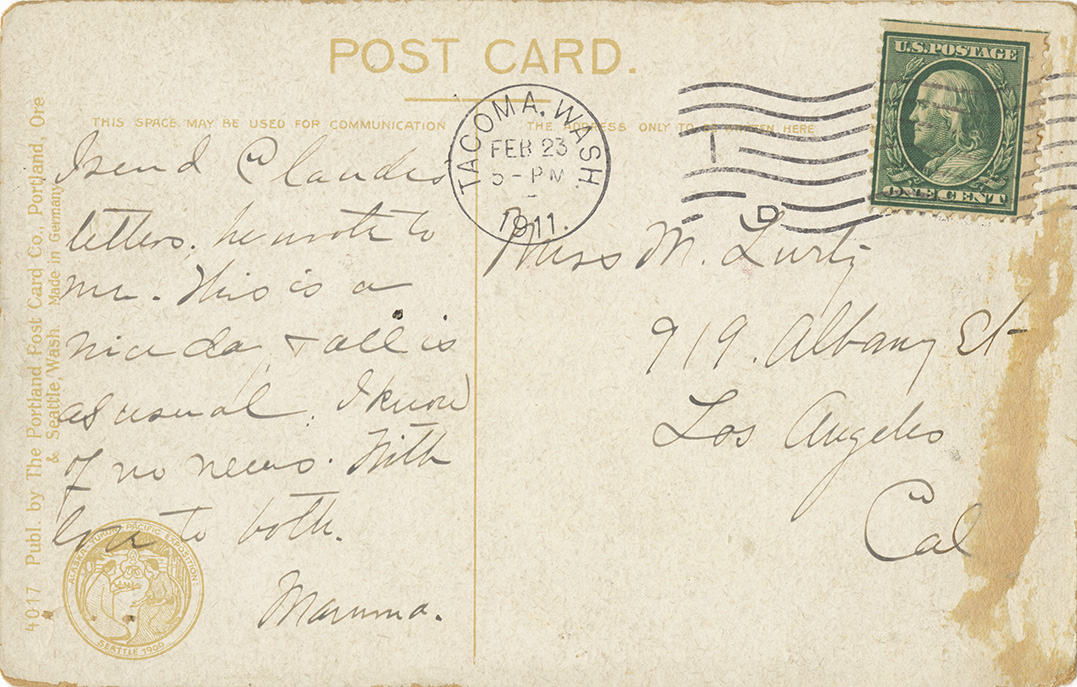 POST CARD.
THIS SPACE MAY BE USED FOR COMMUNICATION
THE ADDRESS ONLY TO BE WRITTEN HERE
U.S. POSTAGE
ONE CENT
TACOMA, WASH.
FEB 23
5 - PM
1911.
D
I send Claudes
letters. he wrote to
me. This is a
nice da & all is
as usual. I know
of no news. With
love to both.
Mamma.
Miss M. Lurtz
919. Albany St
Los Angeles
Cal
4017 Publ by The Portland Post Card Co., Portland, Ore
& Seattle, Wash. Made in Germany
ALASKA YUKON PACIFIC EXPOSITION
SEATTLE 1909